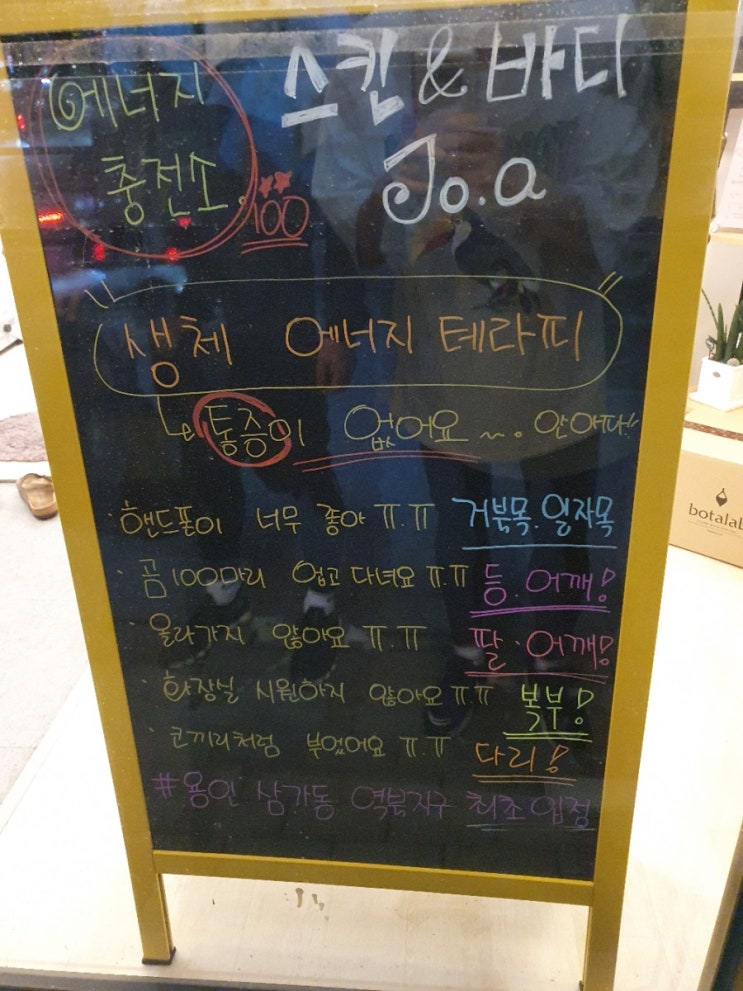 에너지
충전소
100
스킨 & 바디
Jo.a
생체 에너지 테라피
통증이 없어요 ~. 안아파!!
핸드폰이 너무 좋아 ㅠ.ㅠ 거북목.일자목
곰 100마리 업고 다녀요 ㅠ.ㅠ 등.어깨!
올라가지 않아요 ㅠ.ㅠ 팔.어깨!
화장실 시원하지 않아요 ㅠ.ㅠ 복부!
코끼리처럼 부었어요 ㅠ.ㅠ 다리!
#용인 삼가동 역북지구 최초 입점
botalab